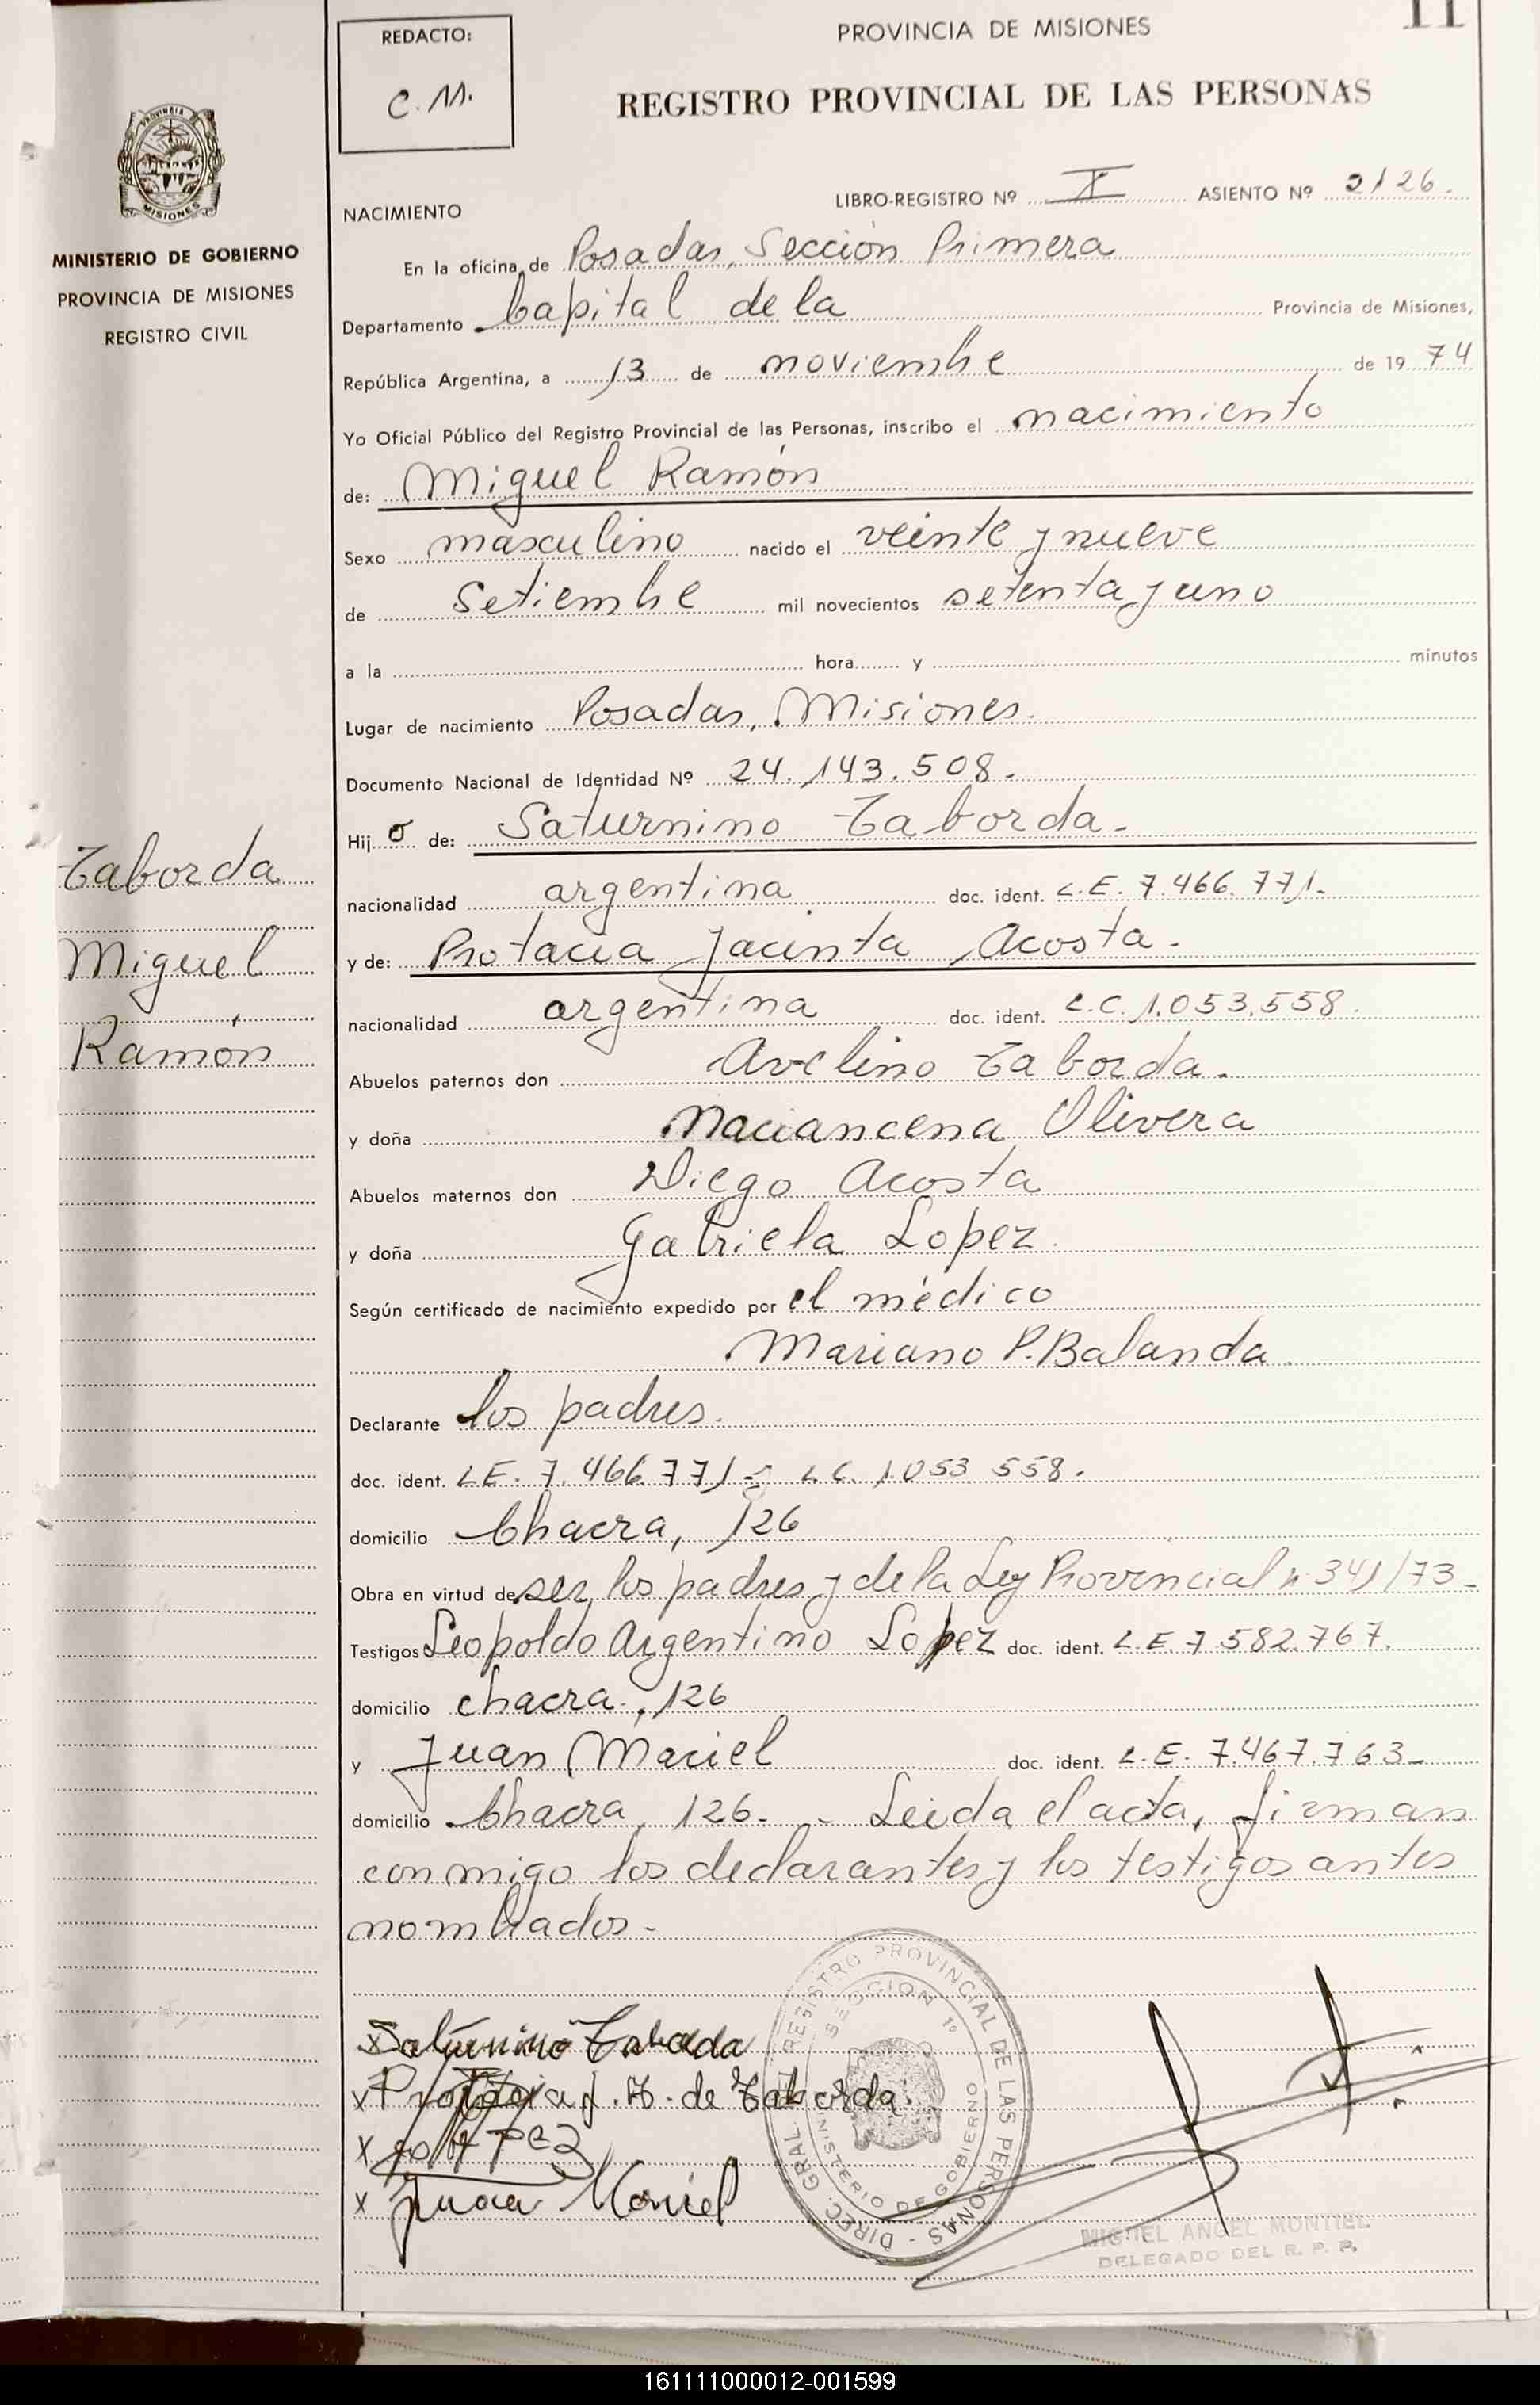 11
REDACTO:
C.M.
PROVINCIA DE MISIONES
REGISTRO PROVINCIAL DE LAS PERSONAS
PROVINCIA DE
MISIONES
MINISTERIO DE GOBIERNO
PROVINCIA DE MISIONES
REGISTRO CIVIL
NACIMIENTO
LIBRO-REGISTRO Nº I ASIENTO Nº 2126.
En la oficina de Posadas, Sección Primera
Departamento Capital de la Provincia de Misiones,
República Argentina, a 13 de noviembre de 1974
Yo Oficial Público del Registro Provincial de las Personas, inscribo el nacimiento
de: Miguel Ramón
Sexo masculino nacido el veinte y nueve
de Setiembre mil novecientos setenta y uno
a la hora y minutos
Lugar de nacimiento Posadas, Misiones.
Documento Nacional de Identidad Nº 24.143.508.
Hijo de: Saturnino Taborda.
nacionalidad argentina doc. ident. L.E. 7.466.771.
y de: Protacia Jacinta Acosta.
nacionalidad argentina doc. ident. L.C. 1.053.558.
Abuelos paternos don Avelino Taborda.
y doña Olivera
Abuelos maternos don Diego Acosta
y doña Gabriela Lopez.
Según certificado de nacimiento expedido por el médico
Mariano P. Balanda.
Declarante los padres.
doc. ident. L.E. 7.466.771 - L.C. 1.053 558.
domicilio Chacra, 126
Obra en virtud de ser los padres y de la Ley Provincial n 341/73-
Testigos Leopoldo Argentino Lopez doc. ident. L.E. 7.582.767.
domicilio chacra, 126
y Juan Maciel doc. ident. L.E. 7.467.763-
domicilio Chacra, 126. - Leida el acta, firman
conmigo los declarantes y los testigos antes
nombrados-
Taborda
Miguel
Ramón
x Saturnino Taborda
x Protacia J. A. de Taborda.
x
x Juan Maciel
DIREC. GRAL. REGISTRO PROVINCIAL DE LAS PERSONAS -
SECCION 1º
MINISTERIO DE GOBIERNO
MIGUEL ANGEL MONTIEL
DELEGADO DEL R. P. P.
161111000012-001599